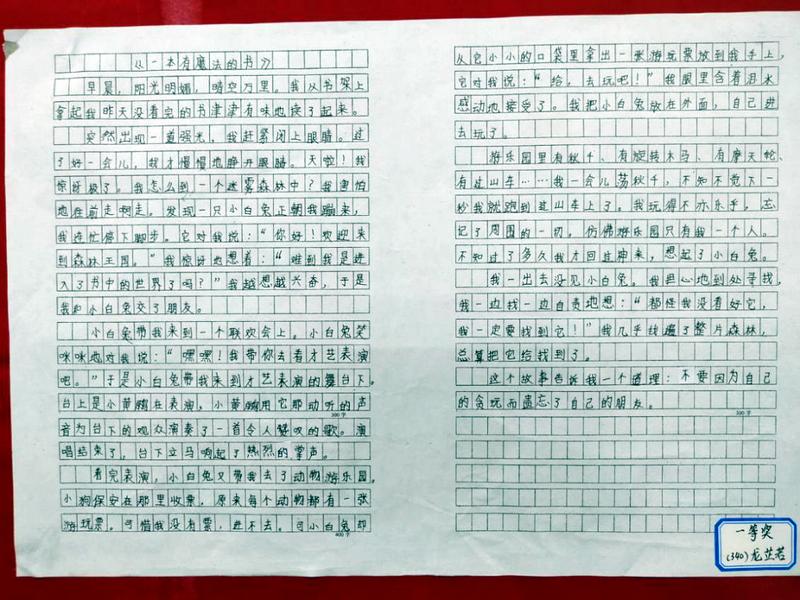 从一本有魔法的书
早晨，阳光明媚，晴空万里。我从书架上
拿起我昨天没看完的书津津有味地读了起来。
突然出现一道强光，我赶紧闭上眼睛。过
了好一会儿，我才慢慢地睁开眼睛。天啦！我
惊讶极了。我怎么到一个迷雾森林中？我害怕
地在前走啊走。发现一只小白兔正朝我蹦来，
我连忙停下脚步。它对我说：“你好！欢迎来
到森林王国。”我惊讶地想着：“难到我是进
入了书中的世界了吗？”我越想越兴奋，于是
我和小白兔交了朋友。
小白兔带我来到一个联欢会上。小白兔笑
咪咪地对我说：“嘿嘿！我带你去看才艺表演
吧。”于是小白兔带我来到才艺表演的舞台下。
台上是小黄鹂在表演，小黄鹂用它那动听的声
300字
音为台下的观众演奏了一首令人赞叹的歌。演
唱结束了，台下立马响起了热烈的掌声。
看完表演，小白兔又带我去了动物游乐园。
小狗保安在那里收票，原来每个动物都有一张
游玩票。可惜我没有票，进不去。可小白兔却
400字
从它小小的口袋里拿出一张游玩票放到我手上，
它对我说：“给，去玩吧！”我眼里含着泪水
感动地接受了。我把小白兔放在外面，自己进
去玩了。
游乐园里有秋千、有旋转木马、有摩天轮、
有过山车……我一会儿荡秋千，不知不觉下一
秒我就跑到过山车上了。我玩得不亦乐乎，忘
记了周围的一切。仿佛游乐园只有我一个人。
不知过了多久我才回过神来，想起了小白兔。
我一出去没见小白兔。我担心地到处寻找，
我一边找一边自责地想：“都怪我没看好它，
我一定要找到它！”我几乎找遍了整片森林，
总算把它给找到了。
这个故事告诉我一个道理：不要因为自己
的贪玩而遗忘了自己的朋友。
一等奖
(340)龙芷若